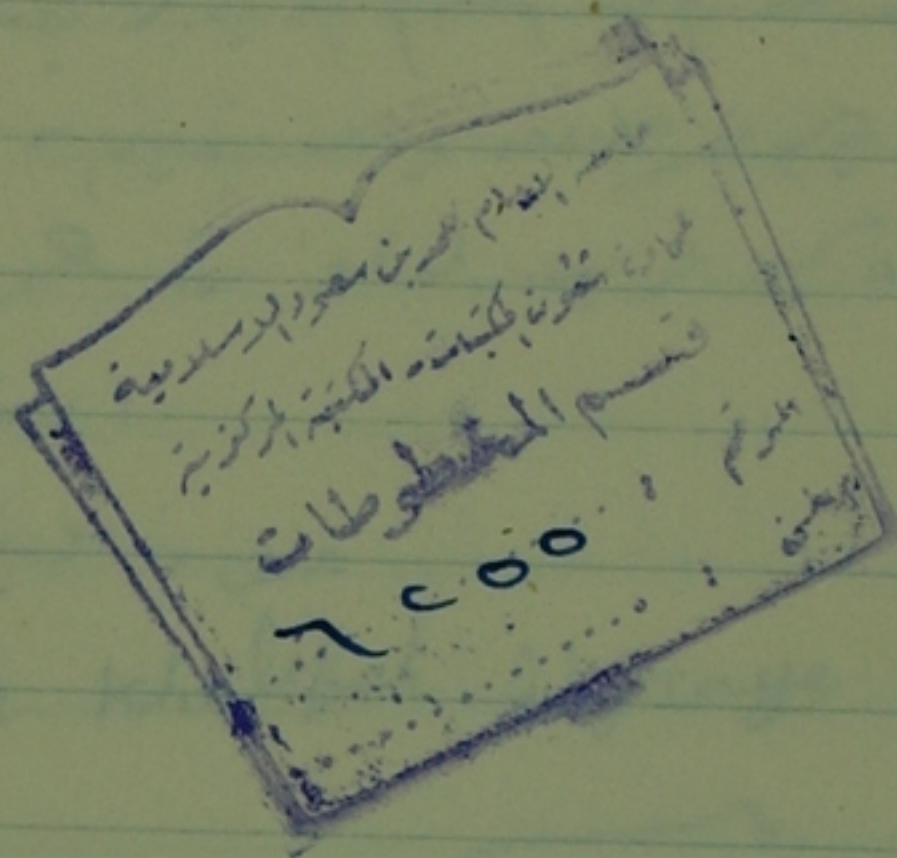 جامعة الإمام محمد بن سعود الإسلامية
عمادة شئون المكتبات - المكتبة المركزية
قسم المخطوطات
الرقم : ٦٢٥٥